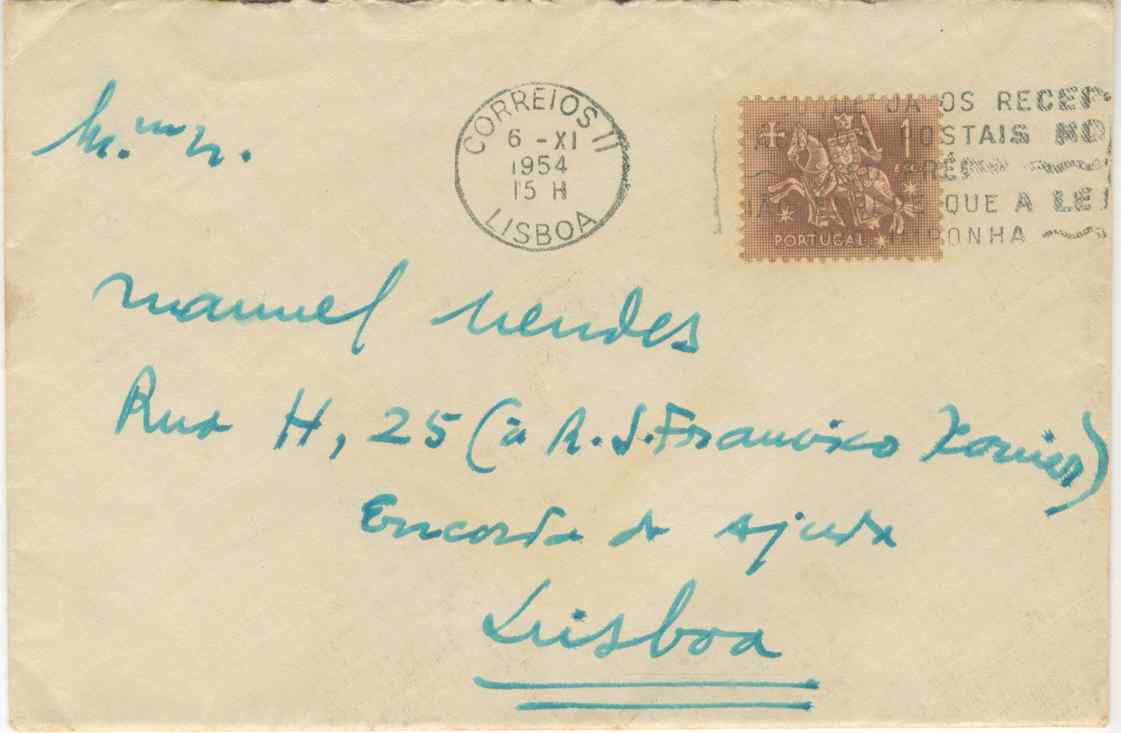 CORREIOS 11
6 - XI
1954
15 H
LISBOA
JÁ OS RECEP
POSTAIS
QUE A LEI
1
PORTUGAL
Manuel Mendes
Rua H, 25 (à R. S. Francisco Xavier)
Encosta da Ajuda
Lisboa